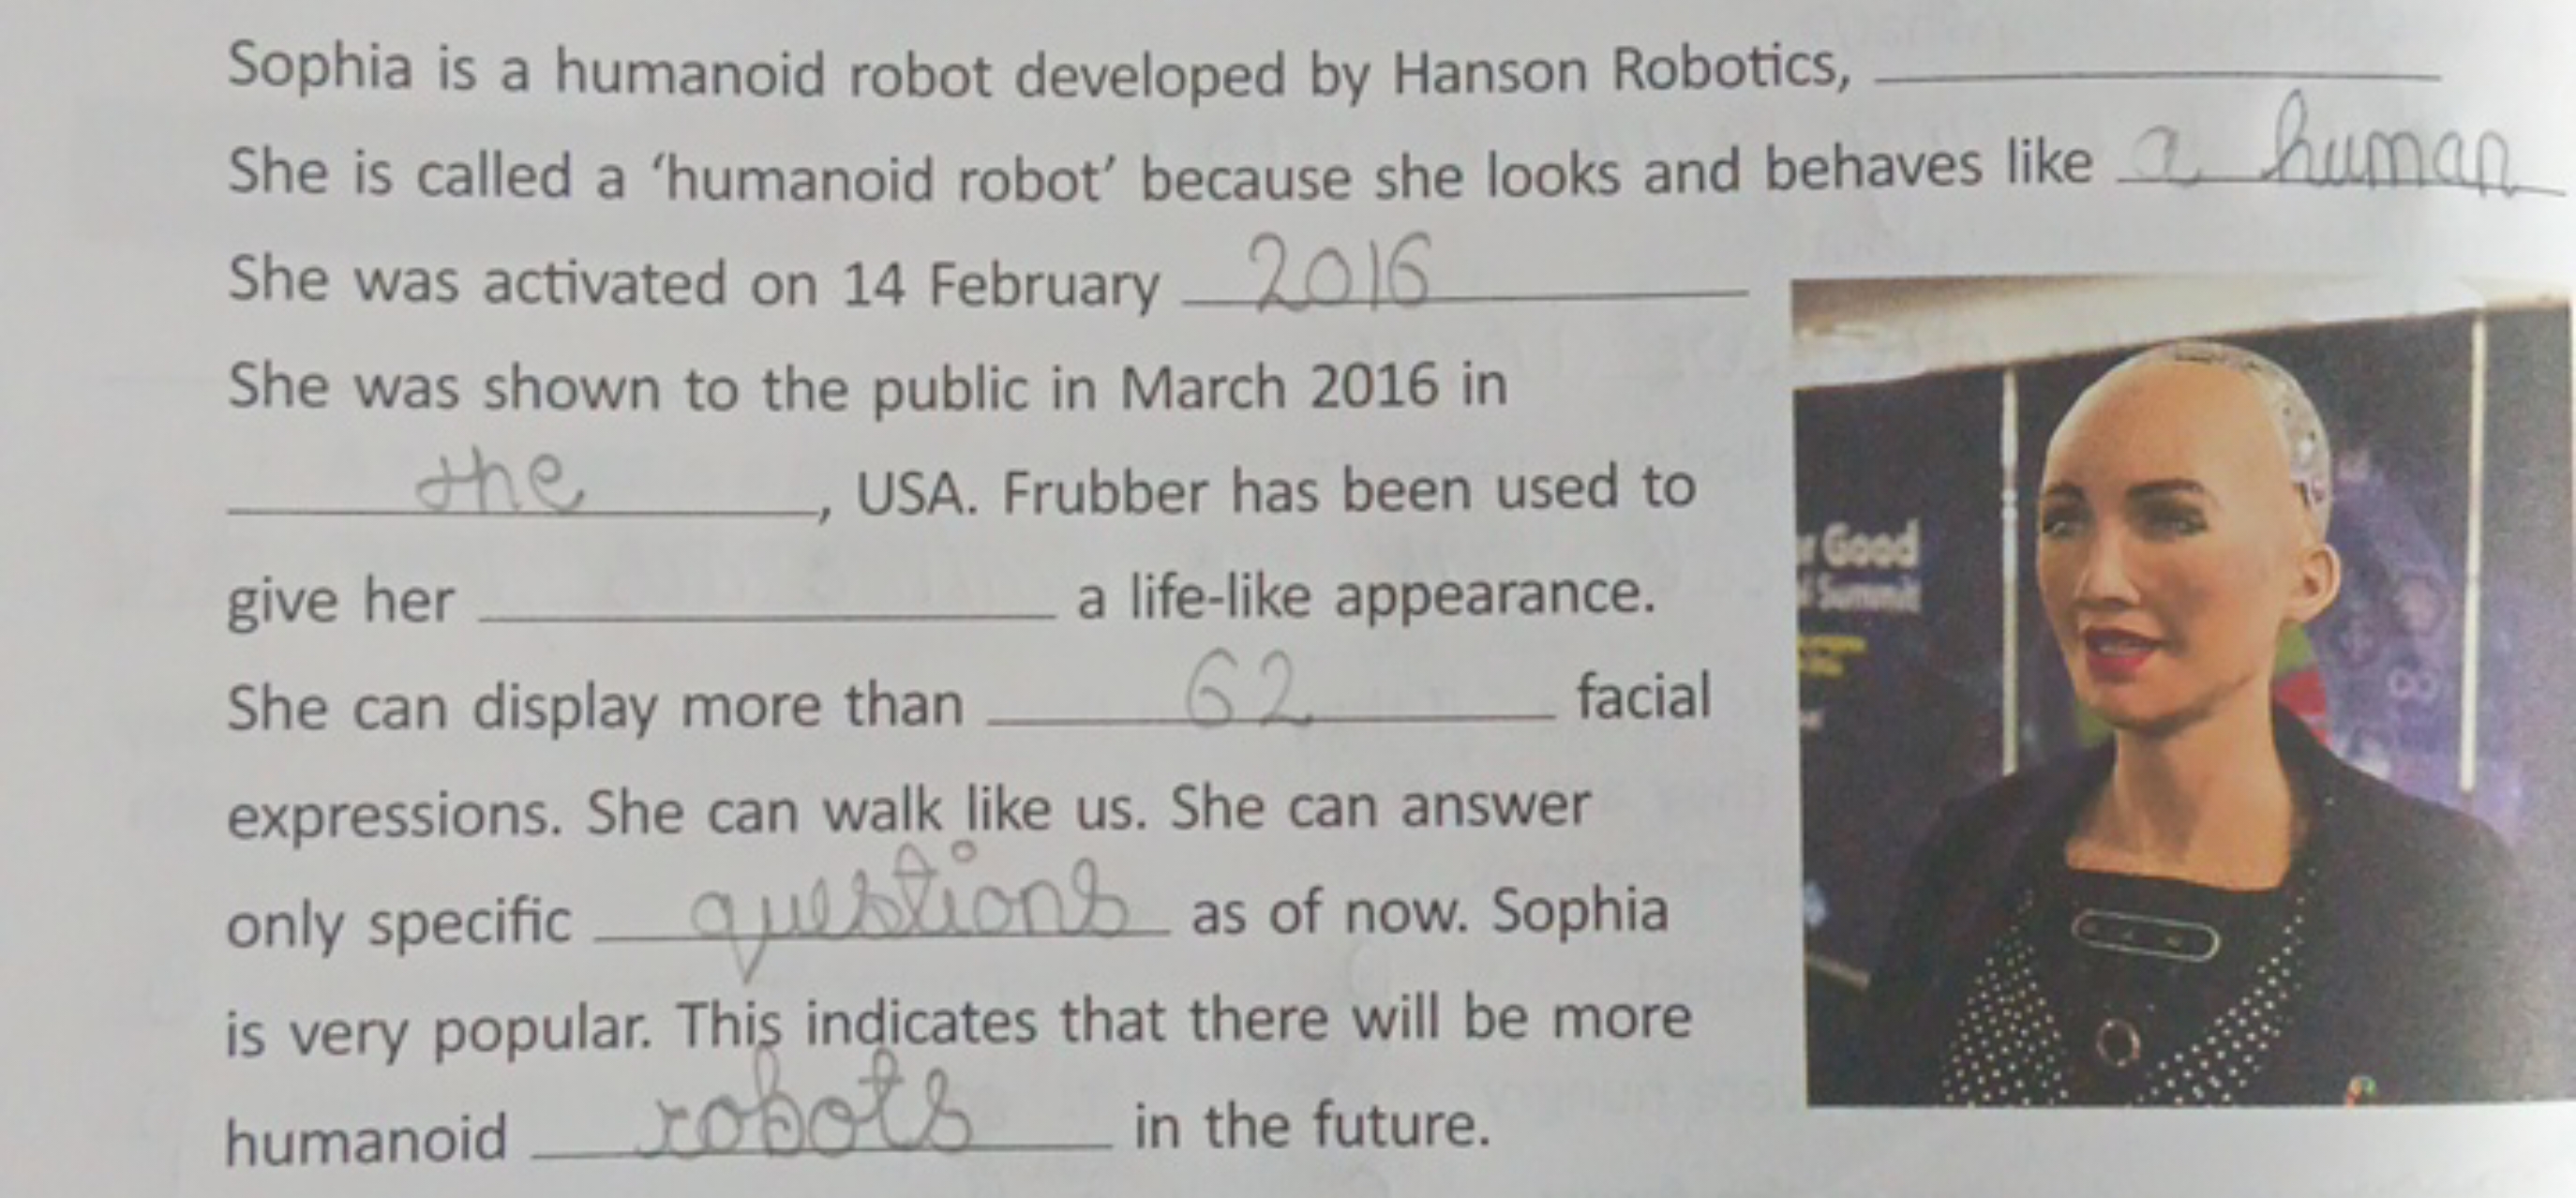 Sophia is a humanoid robot developed by Hanson Robotics, 
She is called a ‘humanoid robot’ because she looks and behaves like a human
She was activated on 14 February 2016
She was shown to the public in March 2016 in
the, USA. Frubber has been used to
give her a life-like appearance.
She can display more than 62 facial
expressions. She can walk like us. She can answer
only specific questions as of now. Sophia
is very popular. This indicates that there will be more
humanoid robots in the future.
Good
Summit